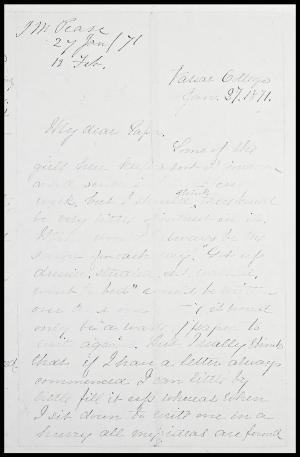 J M Pease
27 Jan / 71
12 Feb.
Vassar College
Jan. 27. 1871.
My dear Papa,
Some of the
girls here keep a sort of
and send it
week, but I should think there would
be very little of interest in it.
always be the
same for each day. "Got up
dressed, studied, eat
went to bed" and to write
over it would
only be a waste of paper to
again. But I really think
that if I have a letter always
commenced I can little by
little fill it up whereas when
I sit down to write one in a
hurry all my ideas are found